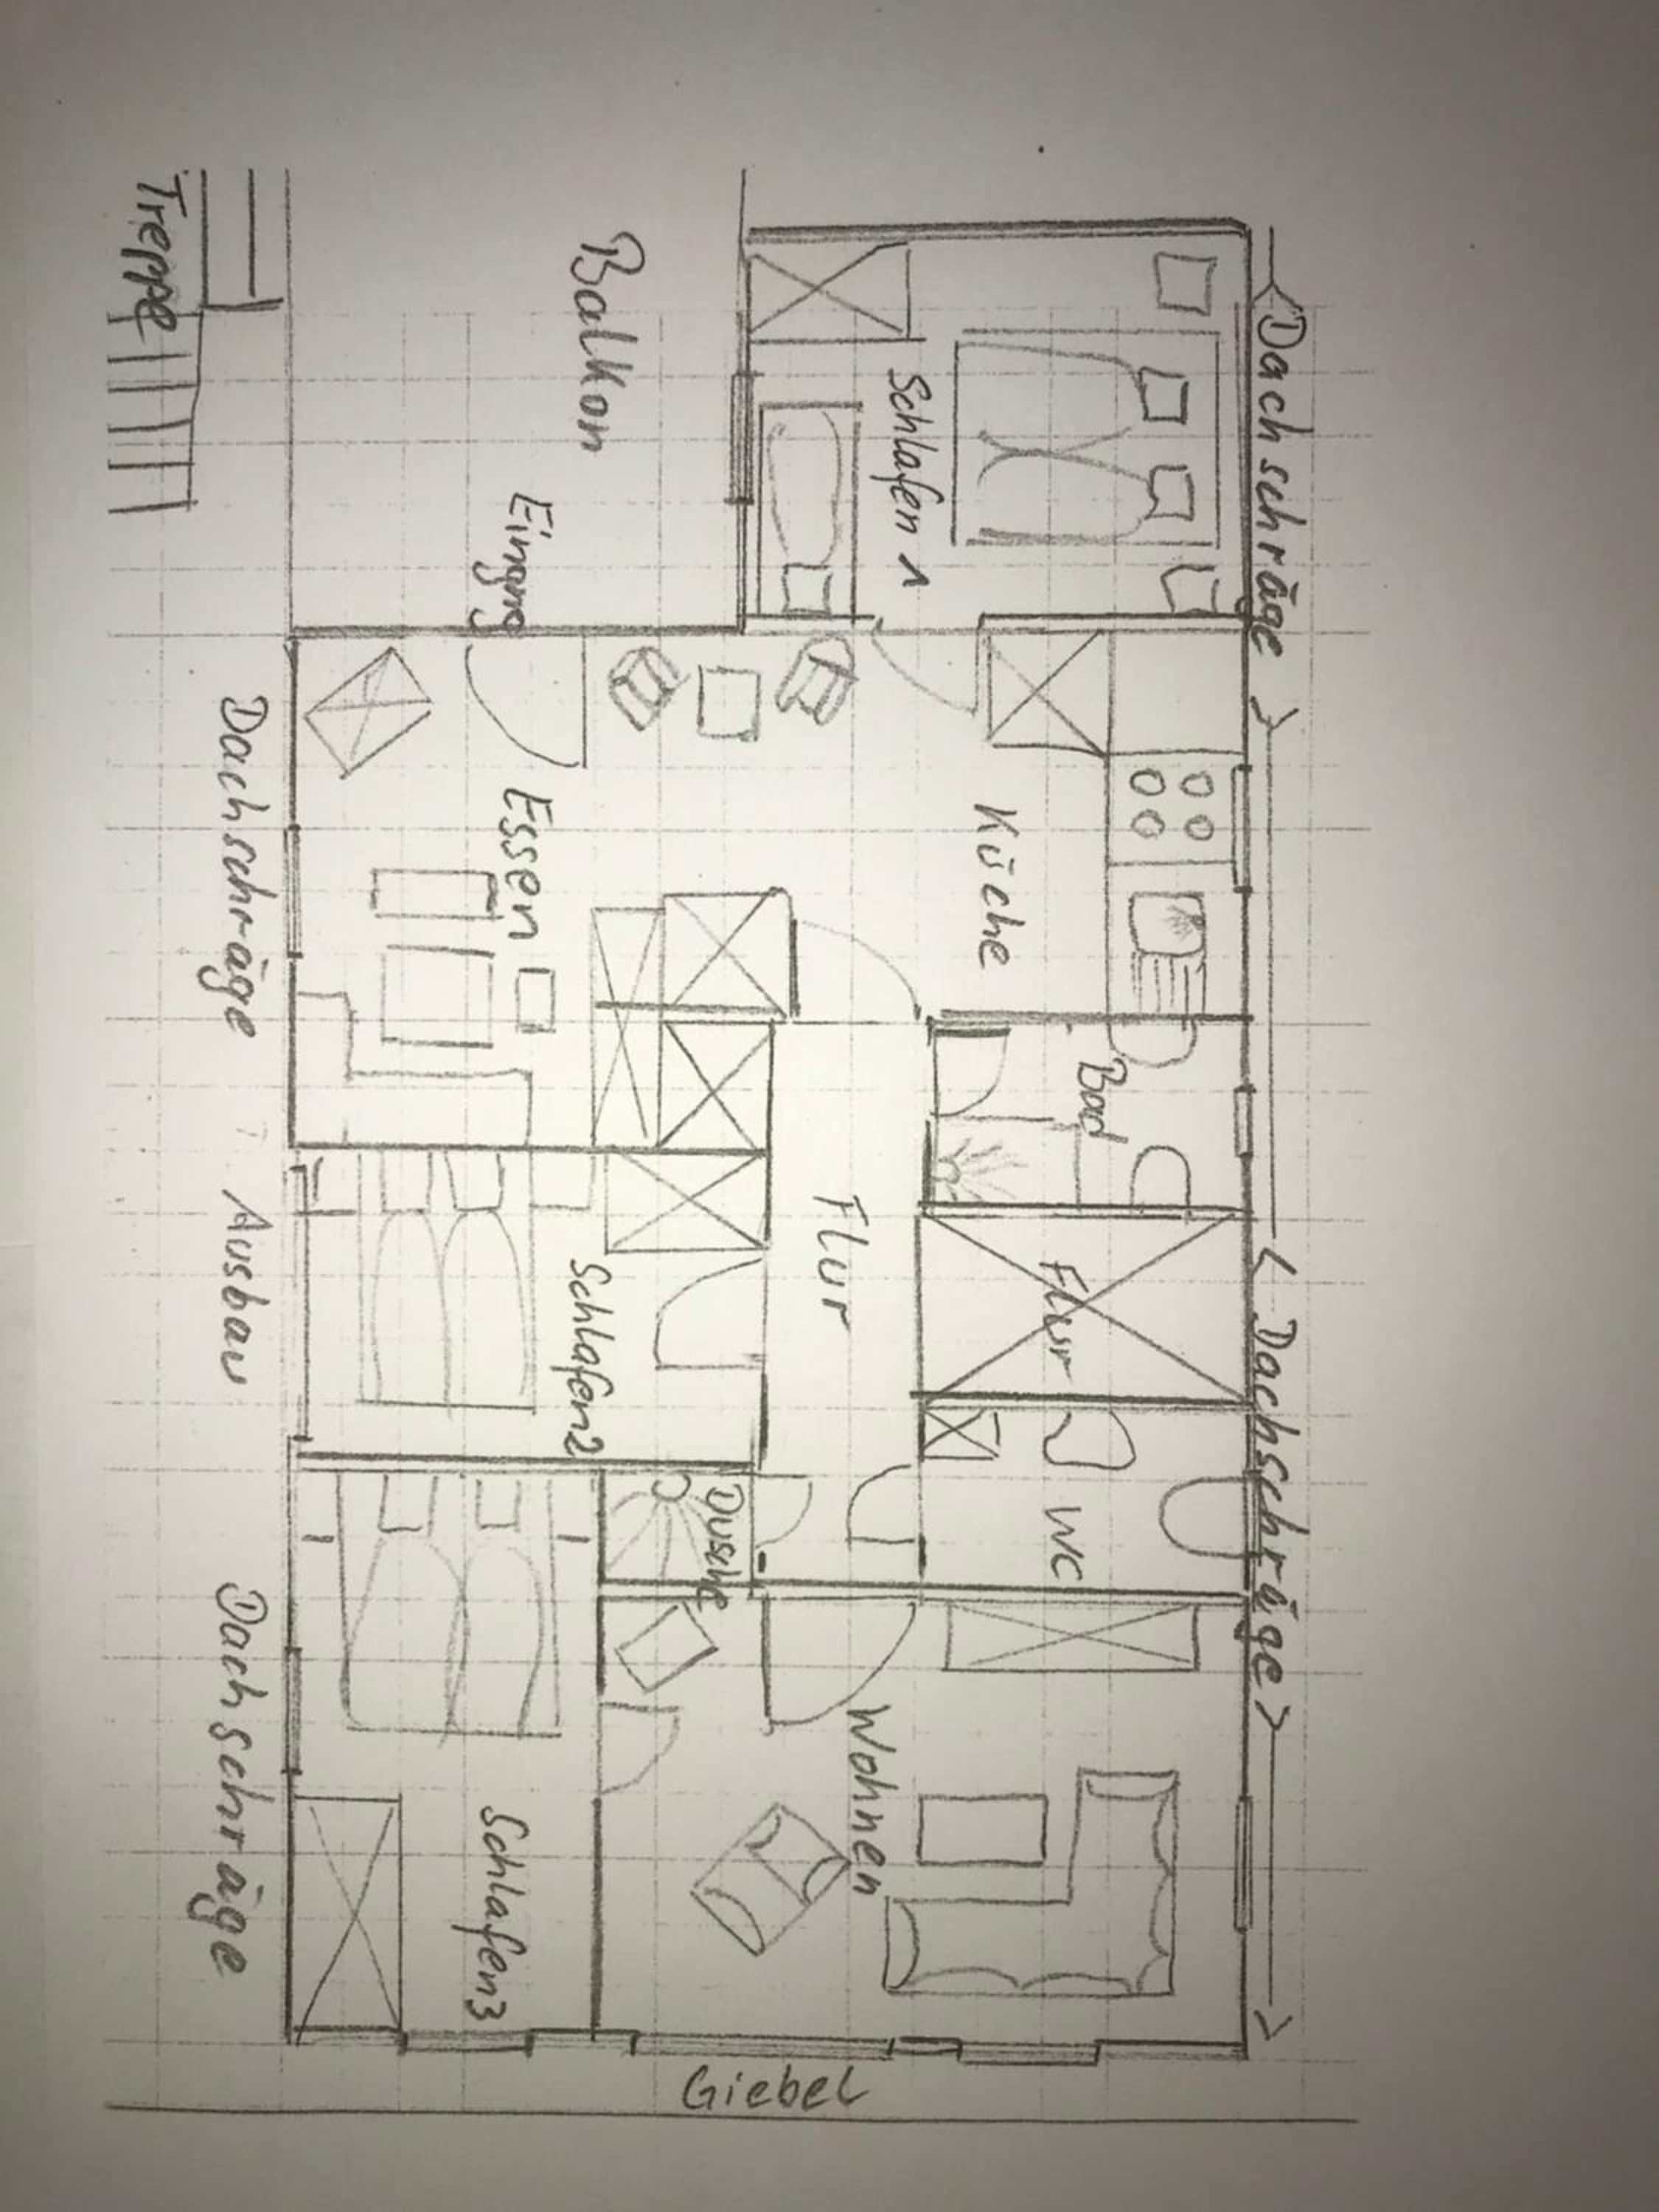 Dachschräge
Dachschräge
Schlafen 1
Küche
Bad
Flur
WC
Wohnen
Flur
Balkon
Eingang
Essen
Schlafen2
Dusche
Schlafen3
Treppe
Dachschräge
Ausbau
Dachschräge
Giebel